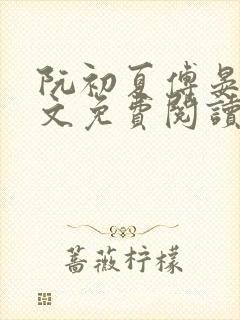 阮初夏傅晏
文免費閱讀
蔷薇柠檬